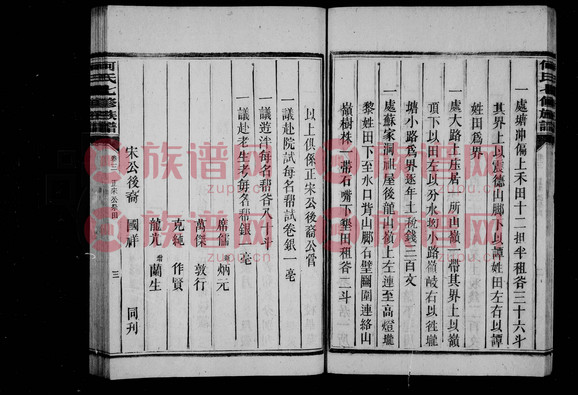 何氏七修族譜
一處塘沖傴上禾田十二担半租谷三十六斗
其界上以震德山腳下以譚姓田左右以譚
姓田為界
一處大路上莊居一所山嶺一帶其界上以嶺
頂下以田左以分水坳小路嶺岐右以
塘小路為界逐年土稅錢二百文
一處蘇家洞祖屋後龍山嶺上左連至高燈壠
黎姓田下至水口背山腳石壁圍團連絡山
嶺樹株一帶石嘴下壆田租谷二斗
以上俱係正宋公後裔公管
一議赴院試每名幇試卷銀一毫
一議遊泮每名幇谷八十斗
一議赴老生考每名幇銀一毫
席儒 炳元
萬傑 敦行
克純 作賢
龍光 蘭生
宋公後裔 國祥 同刋
何氏七修族譜
正宋公祭田
三
族谱网